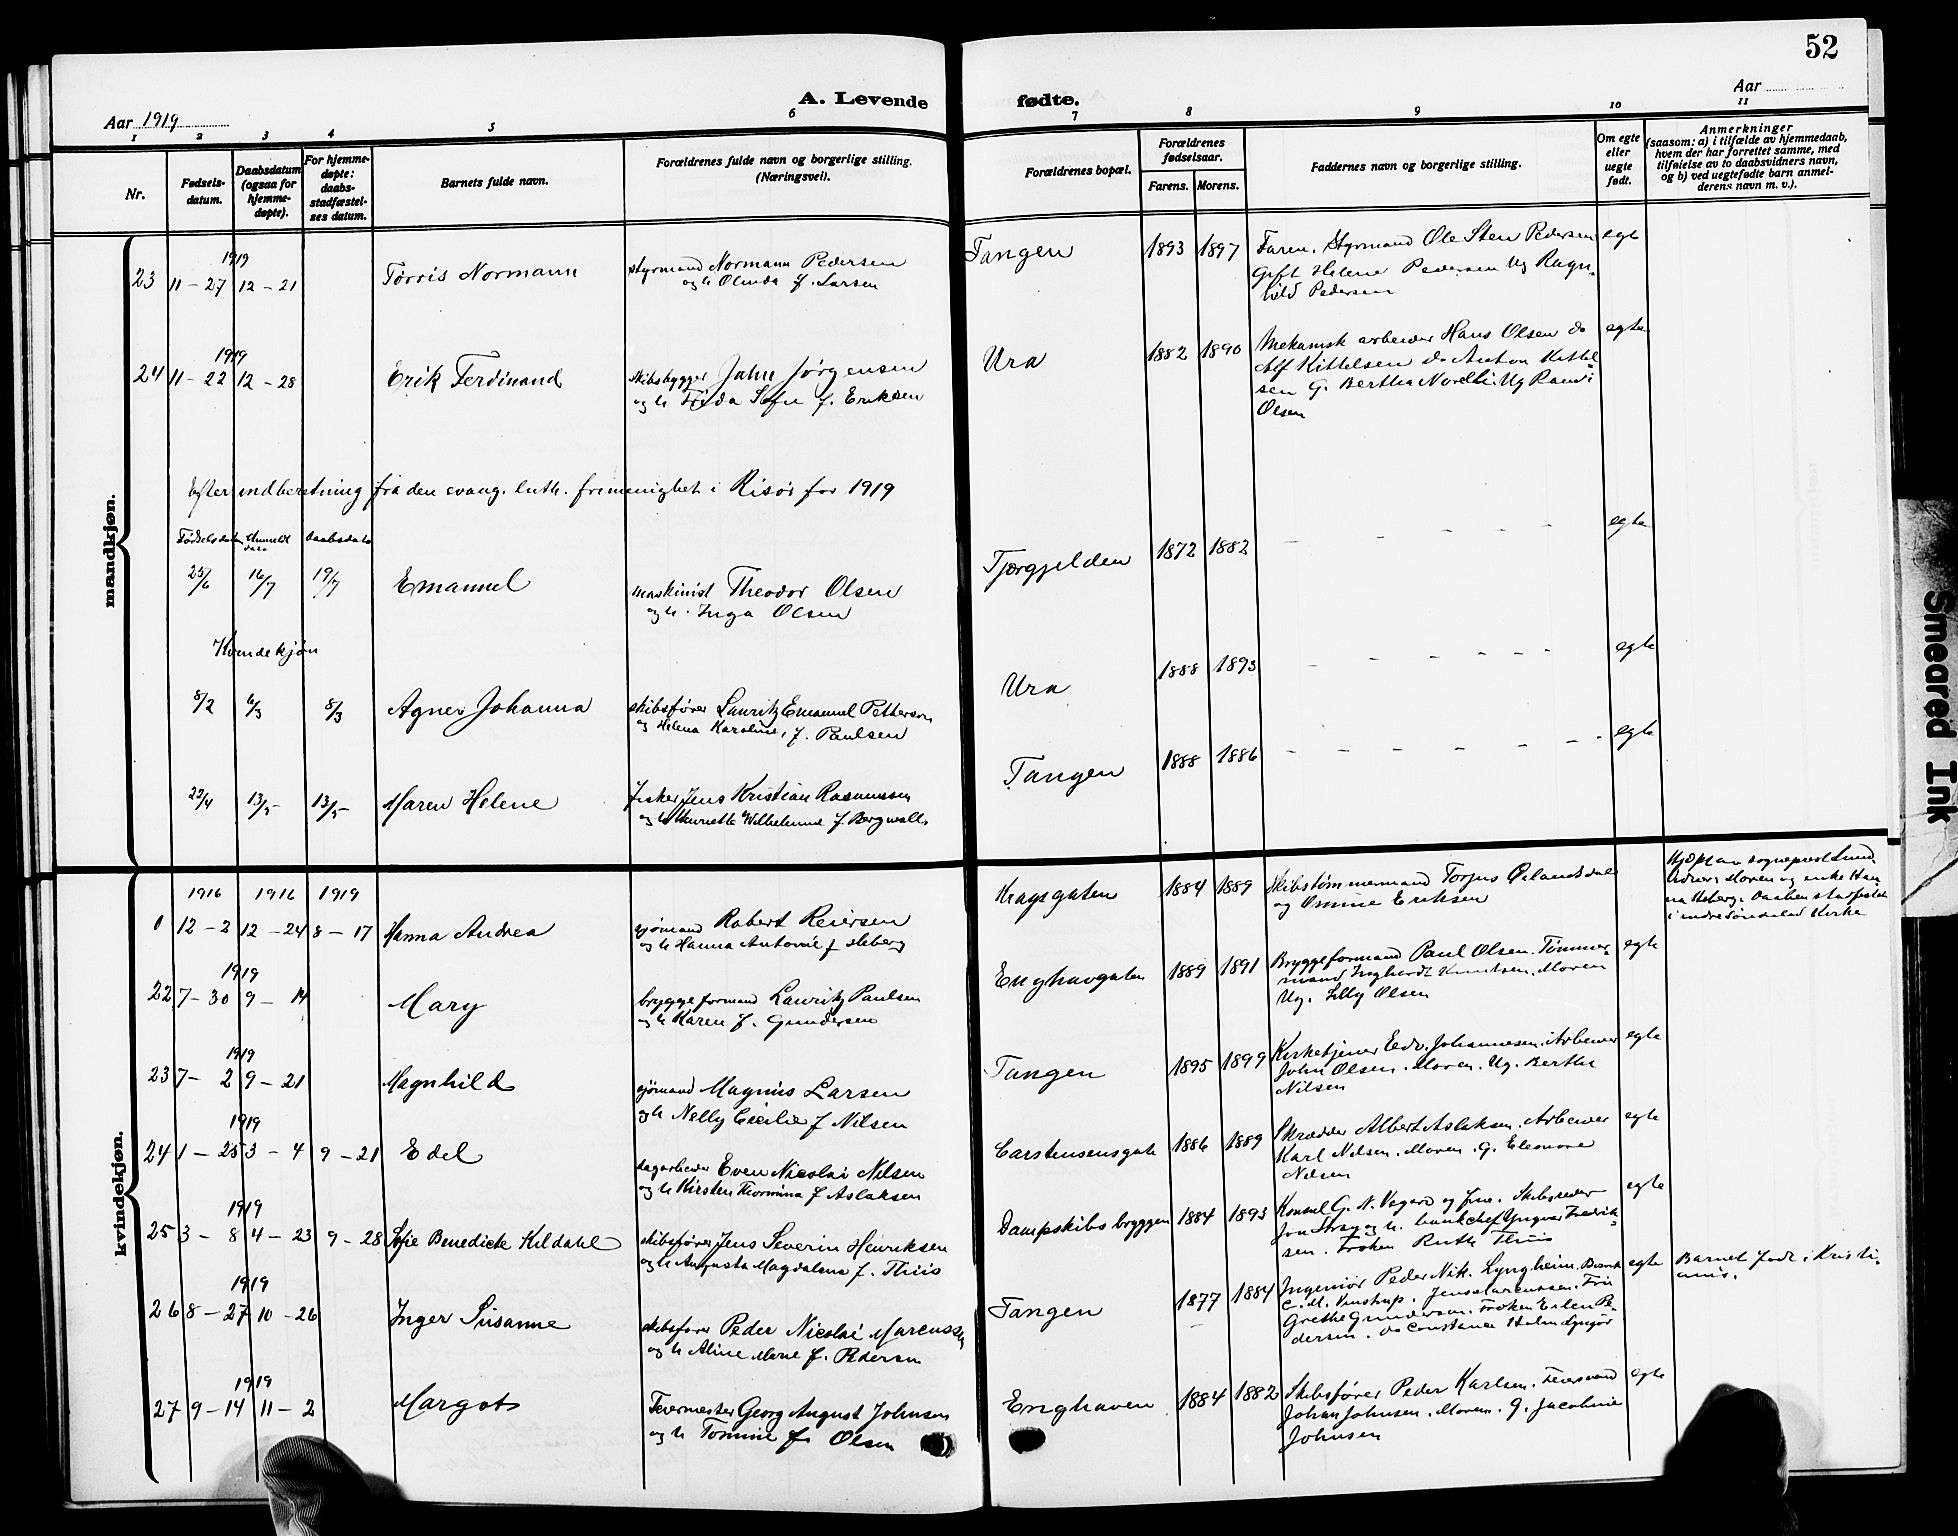 52
Aar 1919
A. Levende
fødte.
Aar
1 2 3 4 5 6 7 8 9 10 11
Nr.
Fødsels-
datum.
Daabsdatum
(ogsaa for
hjemme-
døpte).
For hjemme-
døpte:
daabs-
stadfæstel-
ses datum.
Barnets fulde navn.
Forældrenes fulde navn og borgerlige stilling.
(Næringsvei).
Forældrenes bopæl.
Forældrenes
fødselsaar.
Farens. Morens.
Faddernes navn og borgerlige stilling.
Om egte
eller
uegte
født.
Anmerkninger
(saasom: a) i tilfælde av hjemmedaab,
hvem der har forrettet samme, med
tilføielse av to daabsvidners navn,
og b) ved uegtefødte barn anmel-
derens navn m. v.).
mandkjøn.
1919
23 11-27 12-21 Tørris Normann
styrmand Normann Pedersen
og h Olinda f. Larsen
Tangen 1893 1897
Faren. Styrmand Ole Sten Pedersen
Gift Helene Pedersen Ug Ragn-
hild Pedersen
egte
1919
24 11-22 12-28 Erik Ferdinand
skibsbygger John Jørgensen
og h Frida Sofie f. Eriksen
Ura 1882 1890
Mekanisk arbeider Hans Olsen do
Alf Kittelsen do Anton Kittel
sen G. Bertha Ug Randi
Olsen
egte
Efter indberetning fra den evang. luth. frimenighet i Risør for 1919
Fødselsdato Anmeldt
dato
Daabsdato
25/6 16/7 19/7 Emanuel
maskinist Theodor Olsen
og h. Inga Olsen
Tjærgjelden 1872 1882 - - - - - egte
Kvindekjøn
8/2 6/3 8/3 Agnes Johanna
skibsfører Lauritz Emanuel Petterson
og Helena Karoline, f. Paulsen
Ura 1888 1893 - - - - - - egte
22/4 13/5- 13/5- Maren Helene
fisker Jens Kristian Rasmussen
og h Henriette Wilhelmine f Bergwall
Tangen 1888 1886 - - - - - - egte
kvindekjøn.
1916 1916 1919
1 12-2 12-24 8-17 Hanna Andrea
sjømand Robert Reiersen
og h Hanna Antonie f Heberg
Kragsgaten 1884 1889
Skibstømmermand Torjus
og Omine Eriksen
Hjdpt av sogneprest Lund
Moren og enke Han
na Heberg. Daaben stadfæstet
i indre Søndeled Kirke
1919
22 7-30 9-14 Mary
bryggeformand Lauritz Paulsen
og h Karen f. Gundersen
Enghavgaten 1889 1891
Bryggeformand Paul Olsen. Tømmer-
mand Knutsen. Moren
Ug. Lilly Olsen
egte
1919
23 7-2 9-21 Magnhild
sjømand Magnus Larsen
og h Nelly Cecilie f Nilsen
Tangen 1895 1899
Kirketjener Edv. Johannesen. Arbeider
John Olsen. Moren. Ug. Bertha
Nilsen
egte
1919
24 1-25 3-4 9-21 Edel
dagarbeider Even Nicolai Nilsen
og h Kirsten Thormina f Aslaksen
Carstensensgate 1886 1889
Skrædder Albert Aslaksen. Arbeider
Karl Nilsen. Moren. G. Eleonore
Nilsen
egte
1919
25 3-8 4-23 9-28 Sofie Benedicte Kildahl
skibsfører Jens Severin Henriksen
og h Augusta Magdalena f. Thiis
Dampskibsbryggen 1884 1893
Konsul G. N. og frue. Skibsreder
og h. bankchef Yngvar Fredrik-
sen. Frøken Ruth Thiis
egte
1919
26 8-27 10-26 Inger Susanne
skibsfører Peder Nicolai Marcussen
og h Aline Marie f. Pedersen
Tangen 1877 1884
Ingeniør Peder Nik. Lyngheim.
C. M. Frue
Grethe Gundersen. Frøken Ellen Pe-
dersen. do Constance Holm
egte
Barnet født i Kristi-
ania.
1919
27 9-14 11-2 Margot
Fevermester Georg August Johnsen
og h Tomine f. Olsen
Enghaven 1884 1882
Skibsfører Peder Karlsen.
Johan Johnsen. Moren. G. Jacobine
Johnsen
egte
Smeared Ink